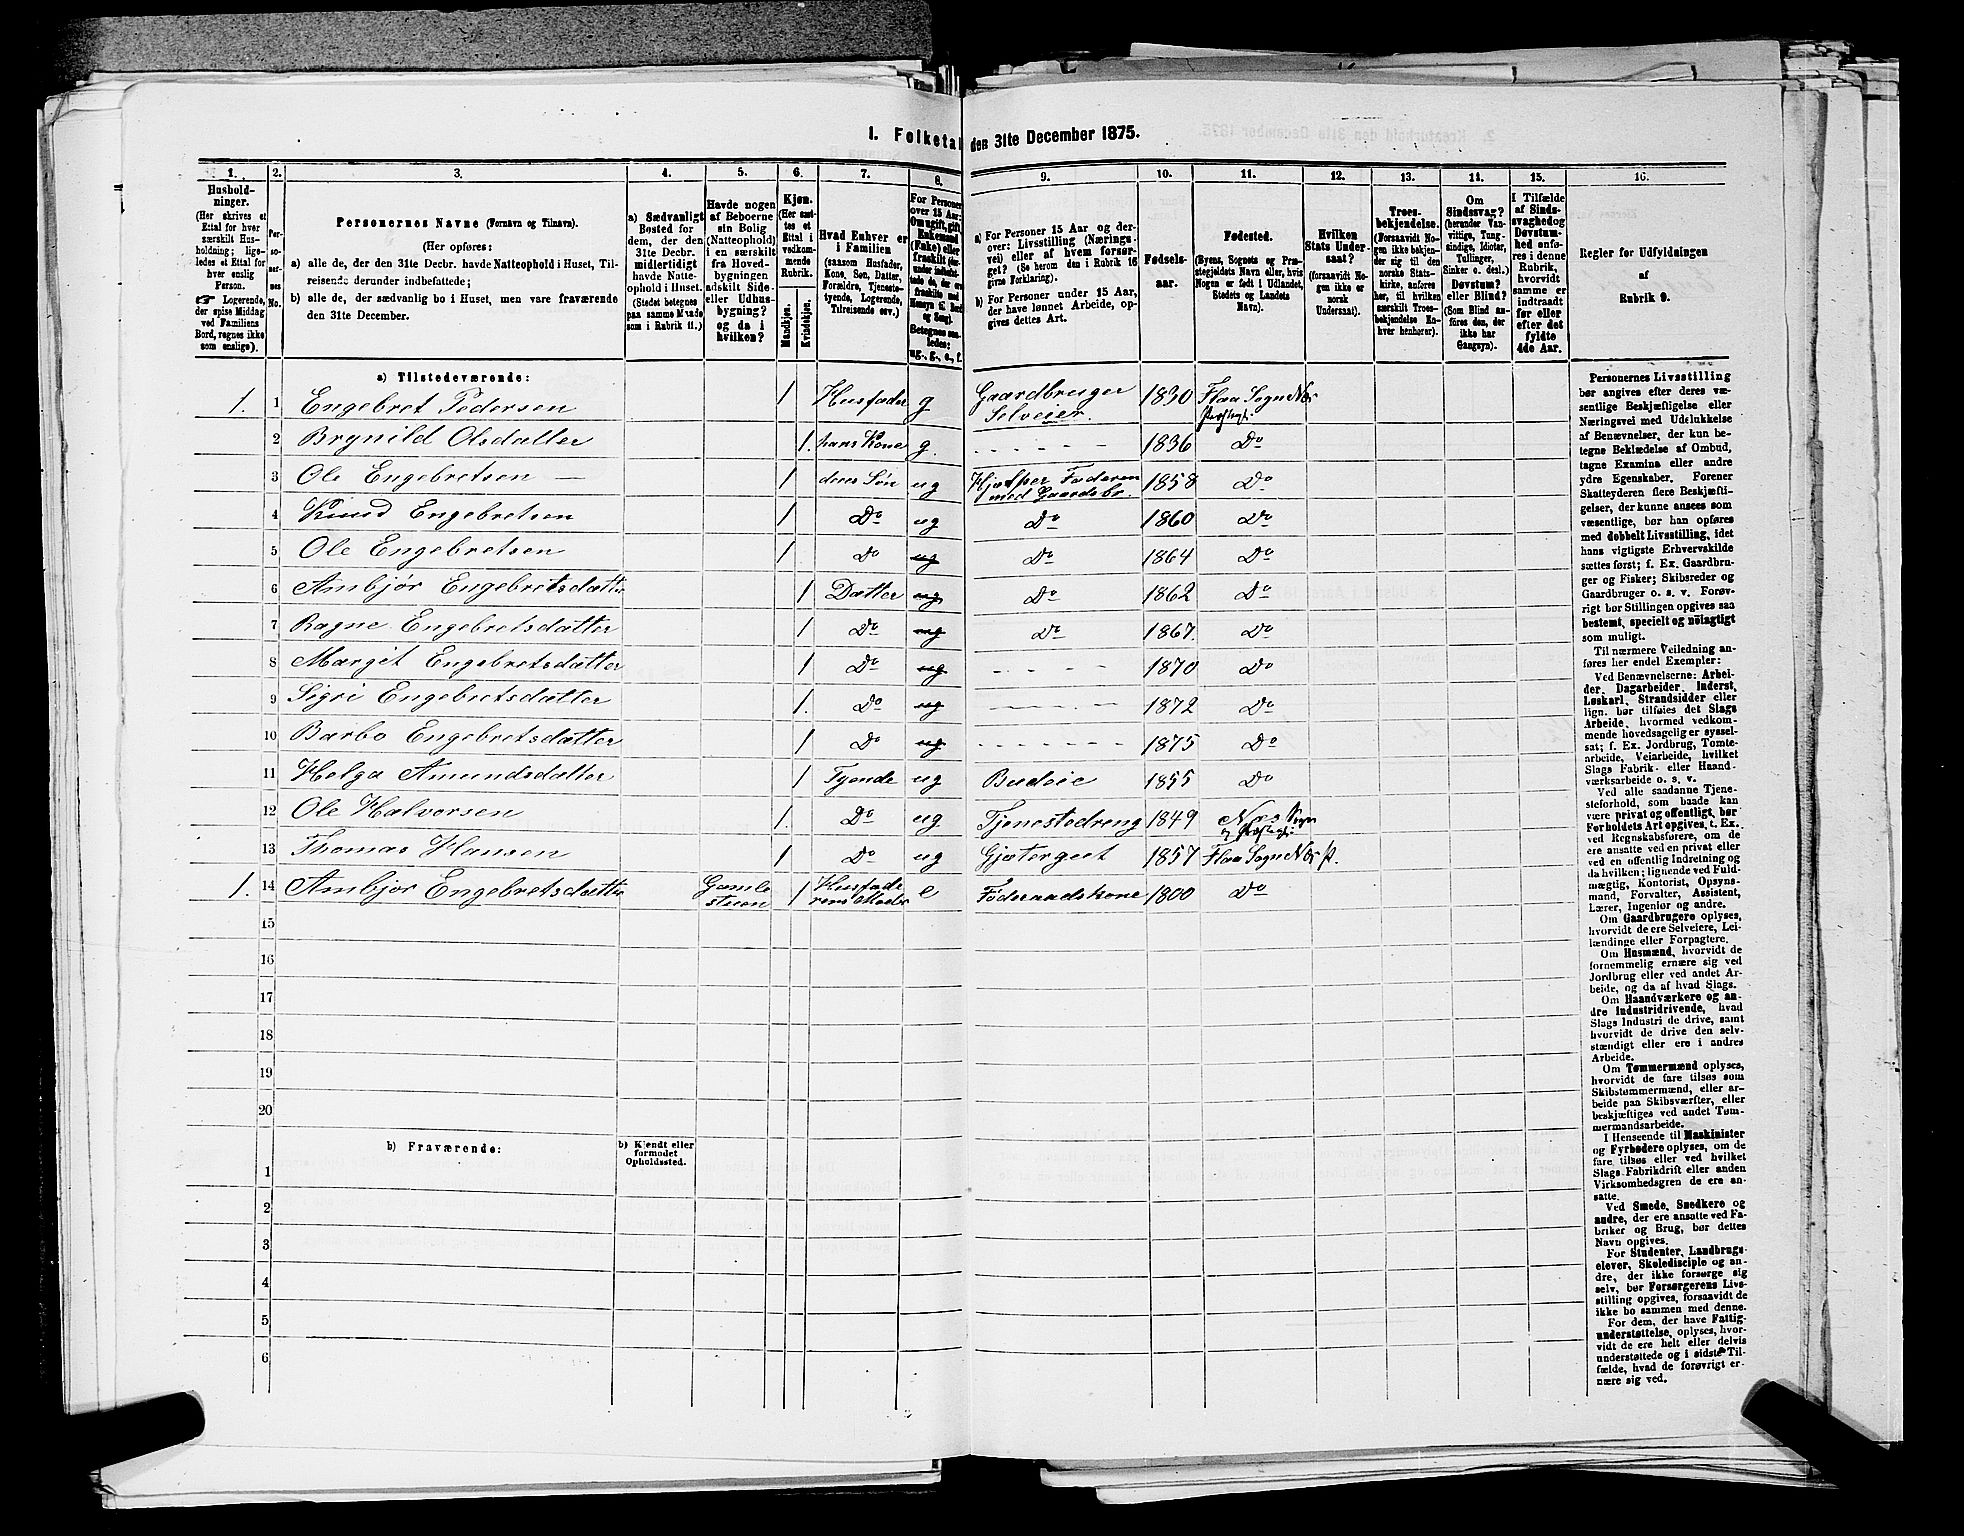 1. Folketal den 31te December 1875.
1. 2. 3. 4. 5. 6. 7. 8. 9. 10. 11. 12. 13. 14. 15. 16.
Hushold-
ninger.
(Her skrives et
Ettal for hver
særskilt Hus-
holdning; lige-
ledes et Ettal for
hver enslig
Person.
☞ Logerende,
der spise Middag
ved Familiens
Bord, regnes ikke
som enslige).
Per-
so-
ner-
nes
No.
Personernes Navne (Fornavn og Tilnavn).
(Her opføres:
a) alle de, der den 31te Decbr. havde Natteophold i Huset, Til-
reisende derunder indbefattede;
b) alle de, der sædvanlig bo i Huset, men vare fraværende
den 31te December.
a) Sædvanligt
Bosted for
dem, der den
31te Decbr.
midlertidigt
havde Natte-
ophold i Huset.
(Stedet betegnes
paa samme Maade
som i Rubrik 11.)
Havde nogen
af Beboerne
sin Bolig
(Natteophold)
i en særskilt
fra Hoved-
bygningen
adskilt Side-
eller Udhus-
bygning?
og da i
hvilken?
Kjøn.
(Her sæt-
tes et
Ettal i
vedkom-
mende
Rubrik.
Mandkjøn.
Kvindekjøn.
Hvad Enhver er
i Familien
(saasom Husfader,
Kone, Søn, Datter,
Forældre, Tjeneste-
tyende, Logerende,
Tilreisende osv.)
For Personer
over 15 Aar:
Om ugift, gift,
Enkemand
(Enke) eller
fraskilt
Betegnes saa-
ledes:
ug., g., e., f.
a) For Personer 15 Aar og der-
over: Livsstilling (Nærings-
vei) eller af hvem forsør-
get? (Se herom den i Rubrik 16
givne Forklaring).
b) For Personer under 15 Aar,
der have lønnet Arbeide, op-
gives dettes Art.
Fødsels-
aar.
Fødested.
(Byens, Sognets og Præ-
stegjeldets Navn eller, hvis
Nogen er født i Udlandet,
Stedets og Landets
Navn).
Hvilken
Stats Under-
saat?
(forsaavidt No-
gen ikke er
norsk
Undersaat).
Troes-
bekjendelse.
(Forsaavidt No-
gen ikke bekjen-
der sig til den
norske Stats-
kirke, anføres
her, til hvilken
særskilt Troes-
bekjendelse En-
hver henhører).
Om
Sindssvag?
(herunder Van-
vittige, Tung-
sindige, Idioter,
Tullinger,
Sinker o. desl.)
Døvstum?
eller Blind?
(Som Blind an-
føres den, der
ikke har
Gangsyn).
I Tilfælde
af Sinds-
svaghed og
Døvstum-
hed anfø-
res i denne
Rubrik,
hvorvidt
samme er
indtraadt
før eller
efter det
fyldte
4de Aar.
Regler for Udfyldningen
af
Rubrik 9.
a) Tilstedeværende:
1. 1 Engebret Pedersen 1 Husfader g Gaardbruger Selveier. 1830 Flaa Sogn Nes Præstegj.
2 Brynild Olsdatter 1. hans Kone g. - - - - 1836 Do
3 Ole Engebretsen — 1 deres Søn ug Hjælper Faderen med Gaardsbr. 1858 Do
4 Knud Engebretsen 1 Do ug Do 1860 Do
5 Ole Engebretsen 1 Do ug Do 1864 Do
6 Ambjør Engebretsdatter 1 Datter ug Do 1862 Do
7 Ragne Engebretsdatter 1 Do ug Do 1867. Do
8 Margit Engebretsdatter 1 Do ug - - - - 1870 Do
9 Sigri Engebretsdatter 1. Do ug - - - - 1872 Do
10 Barbo Engebretsdatter 1 Do ug - - - - - - - 1875 Do
11 Helga Amundsdatter 1 Tyende ug Budeie 1855 Do
12 Ole Halvorsen 1. Do ug Tjenestedreng 1849 Nes Sogn og Præstegj:
13 Thomas Hansen 1 Do ug Gjætergut 1857 Flaa Sogn Nes P.
1. 14 Ambjør Engebretsdatter Gamle stuen 1 Husfaderens Moder e Føderaadskone 1800 Do
15
16
17
18
19
20
b) Fraværende:
b) Kjendt eller
formodet
Opholdssted.
1
2
3
4
5
6
Personernes Livsstilling
bør angives efter deres væ-
sentlige Beskjæftigelse eller
Næringsvei med Udelukkelse
af Benævnelser, der kun be-
tegne Beklædelse af Ombud,
tagne Examina eller andre
ydre Egenskaber. Forener
Skatteyderen flere Beskjæfti-
gelser, der kunne ansees som
væsentlige, bør han opføres
med dobbelt Livsstilling, idet
hans vigtigste Erhvervskilde
sættes først; f. Ex. Gaardbru-
ger og Fisker; Skibsreder og
Gaardbruger o. s. v. Forøv-
rigt bør Stillingen opgives saa
bestemt, specielt og nøiagtigt
som muligt.
Til nærmere Veiledning an-
føres her endel Exempler:
Ved Benævnelserne: Arbei-
der, Dagarbeider, Inderst,
Løskarl, Strandsidder eller
lign. bør tilføies det Slags
Arbeide, hvormed vedkom-
mende hovedsagelig er syssel-
sat; f. Ex. Jordbrug, Tomte-
arbeide, Veiarbeide, hvilket
Slags Fabrik- eller Haand-
værksarbeide o. s. v.
Ved alle saadanne Tjene-
steforhold, som baade kan
være privat og offentligt, bør
Forholdets Art opgives, t. Ex.
ved Regnskabsførere, om de
ere ansatte ved en privat eller
ved en offentlig Indretning og
da hvilken; lignende ved Fuld-
mægtig, Kontorist, Opsyns-
mand, Forvalter, Assistent,
Lærer, Ingeniør og andre.
Om Gaardbrugere oplyses,
hvorvidt de ere Selveiere, Lei-
lændinge eller Forpagtere.
Om Husmænd, hvorvidt de
fornemmelig ernære sig ved
Jordbrug eller ved andet Ar-
beide, og da af hvad Slags.
Om Haandværkere og an-
dre Industridrivende, hvad
Slags Industri de drive, samt
hvorvidt de drive den selv-
stændigt eller ere i andres
Arbeide.
Om Tømmermænd oplyses,
hvorvidt de fare tilsøs som
Skibstømmermænd, eller ar-
beide paa Skibsværfter, eller
beskjæftiges ved andet Tøm-
mermandsarbeide.
I Henseende til Maskinister
og Fyrbødere oplyses, om de
fare tilsøs eller ved hvilket
Slags Fabrikdrift eller anden
Virksomhedsgren de ere an-
satte.
Ved Smede, Snedkere og
andre, der ere ansatte ved Fa-
briker og Brug, bør dettes
Navn opgives.
For Studenter, Landbrugs-
elever, Skoledisciple og an-
dre, der ikke forsørge sig
selv, bør Forsørgerens Livs-
stilling opgives, forsaavidt de
ikke bo sammen med denne.
For dem, der have Fattig-
understøttelse, oplyses, hvor-
vidt de ere helt eller delvis
understøttede og i sidste Til-
fælde, hvad de forøvrigt er-
nære sig ved.